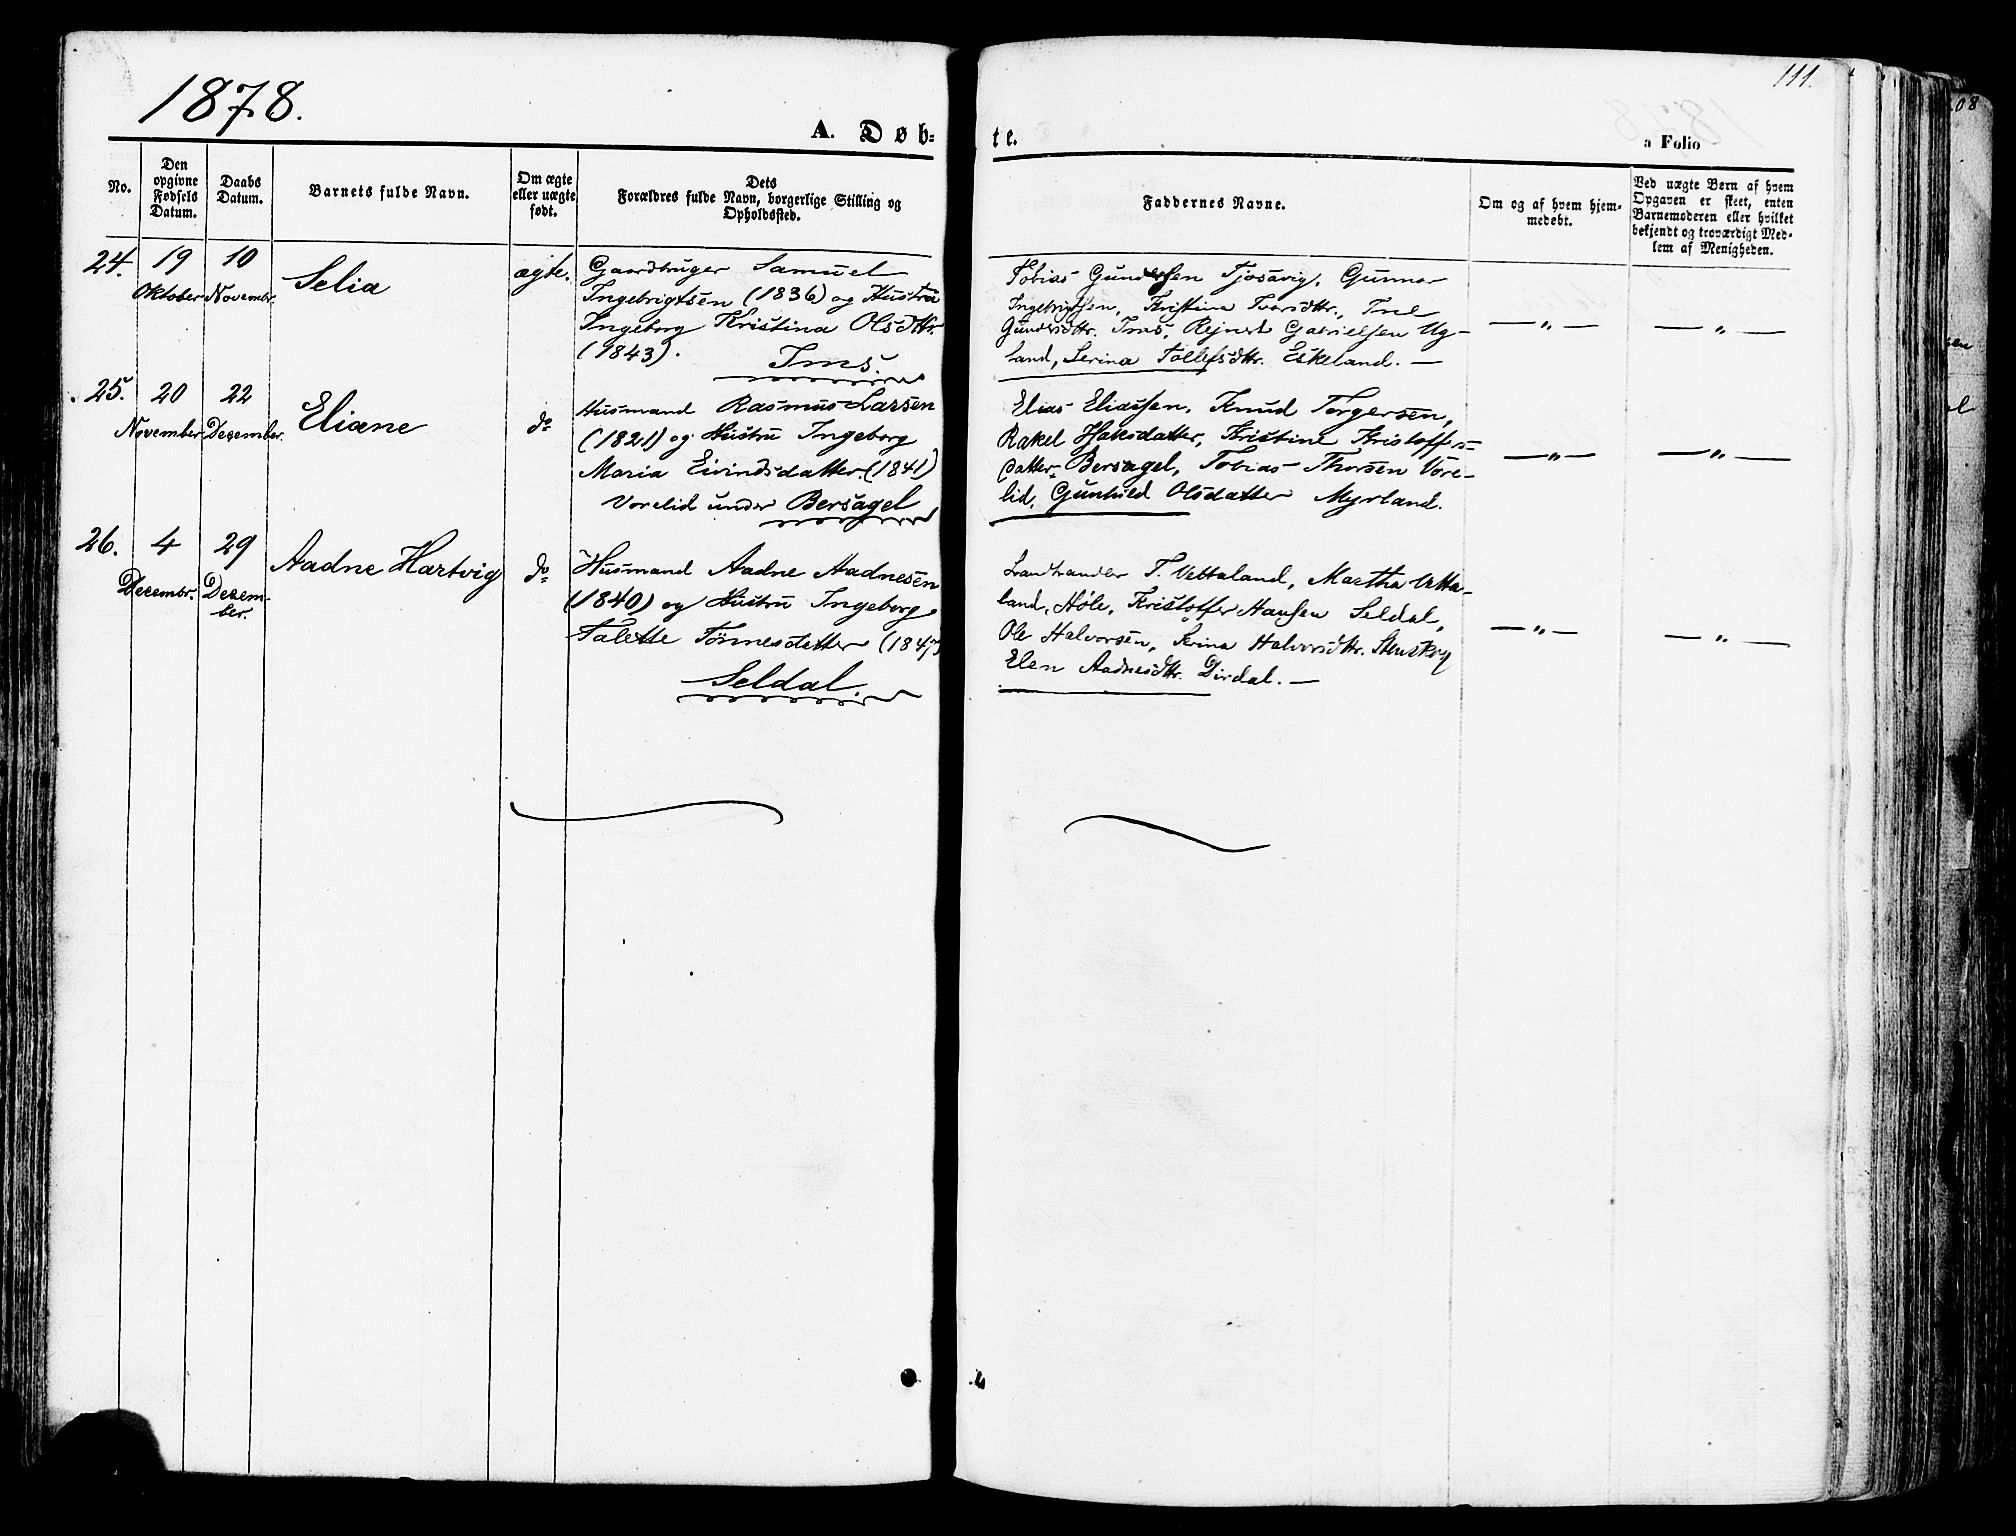 1878.
111.
A. Døb-
te.
a Folio
No.
Den opgivne Fødsels Datum.
Daabs Datum.
Barnets fulde Navn.
Om ægte eller uægte født.
Dets Forældres fulde Navn, borgerlige Stilling og Opholdssted.
Faddernes Navne.
Om og af hvem hjemmedøbt.
Ved uægte Børn af hvem Opgaven er skeet, enten Barnemoderen eller hvilket bekjendt og troværdigt Medlem af Menigheden.
24.
19 Oktober
10 Novembr.
Selia
ægte.
Gaardbruger Samuel
Ingebrigtsen (1836) og Hustru
Ingeborg Kristina Olsdttr.
(1843).
Ims.
Tobias Gundersen Tjosavig, Gunnar
Ingebrigtsen, Kristina Ivarsdttr., Ine
Gundersdttr. Ims, Rejnert Gabrielsen Ug-
land, Serina Tollefsdttr. Eskeland. —
— " —
— " —
25.
20 November
22 Desember.
Eliane
do
Husmand Rasmus Larsen
(1821) og Hustru Ingeborg
Maria Eivindsdatter (1841)
Vorelid under Bersagel
Elias Eliassen, Knud Torgersen,
Rakel Haksdatter, Kristine Kristoffers-
datter Bersagel, Tobias Thorsen Vore-
lid, Gunhild Olsdatter Myrland.
— " —
— " —
26.
4 Desembr.
29 Desem-
ber.
Aadne Hartvig
do
Husmand Aadne Aadnesen
(1840) og Hustru Ingeborg
Talette Tönnesdatter (1847)
Seldal.
T. Vettaland, Martha Vetta-
land, Höle, Kristoffer Hansen Seldal,
Ole Halvorsen, Serina Halvorsdttr. Stenskog
Elen Aadnesdttr. Dirdal. —
— " —
— " —